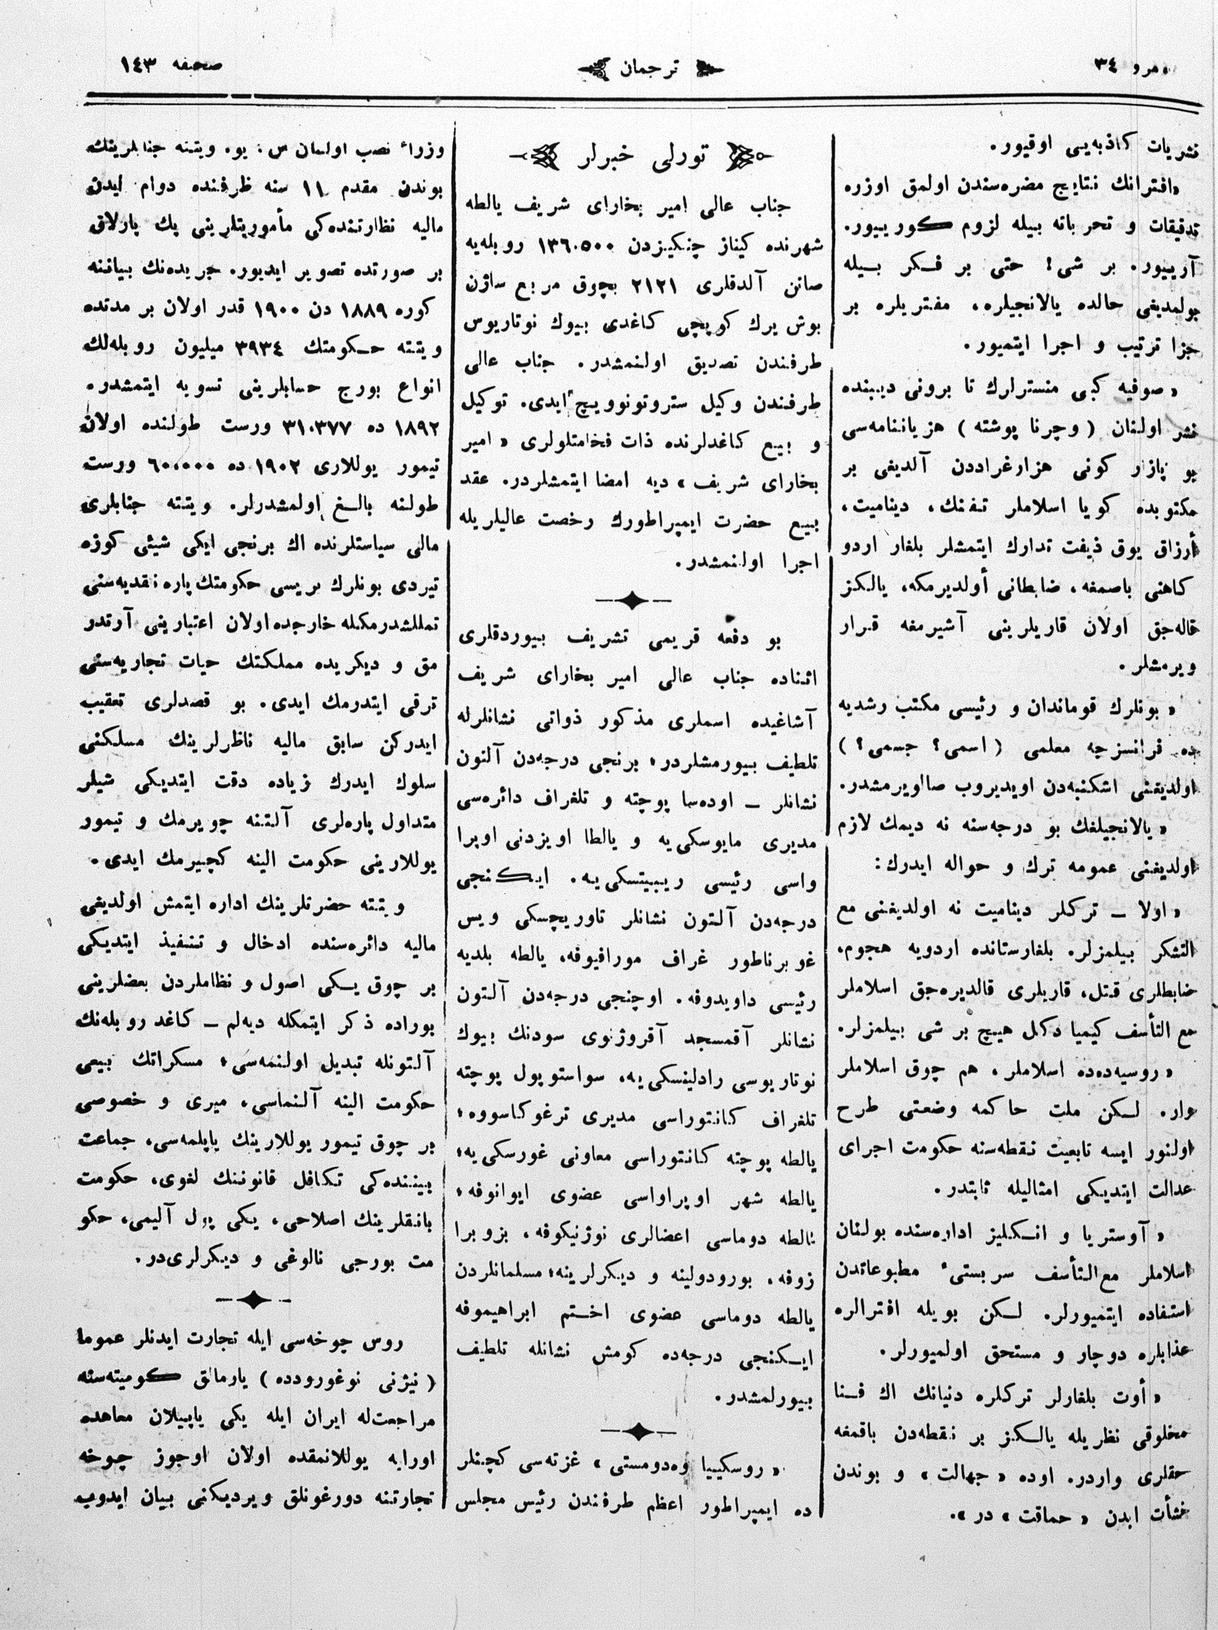 نمرو ٣٤
ترجمان
صحیفه ١٤٣
نشریات کاذبه‌یی اوقیور.
«افترانك نتایج مضره‌سندن اولمق اوزره
تدقیقات و تحریاته بیله لزوم کورییور.
آرییور. بر شی! حتی بر فکر بیله
بولمدیغی حالده یالانجیلره، مفتریلره بر
جزا ترتیب و اجرا ایتمیور.
«صوفیه کبی منسترلرك تا برونی دیبنده
نشر اولنان (وچرنا پوشته) هزیاننامه‌سی
بو پازار کونی هزارغراددن آلدیغی بر
مکتوبده کویا اسلاملر تفنك، دینامیت،
أرزاق یوق ذیفت تدارك ایتمشلر بلغار اردو
کاهنی باصمغه، ضابطانی أولدیرمکه، یالکز
قاله‌جق اولان قاریلرینی آشیرمغه قرار
ویرمشلر.
«بونلرك قوماندان و رئیسی مکتب رشدیه
ده فرانسزجه معلمی (اسمی؟ جسمی؟)
اولدیغنی اشکنبه‌دن اویدیروب صالویرمشدر.
«یالانجیلغك بو درجه‌سنه نه دیمك لازم
اولدیغنی عمومه ترك و حواله ایدرك:
«اولا ــ ترکلر دینامیت نه اولدیغنی مع
التشکر بیلمزلر. بلغارستانده اردویه هجوم،
ضابطلری قتل، قاریلری قالدیره‌جق اسلاملر
مع التأسف کیمیا دکل هیچ بر شی بیلمزلر.
«روسیه‌ده‌ده اسلاملر، هم چوق اسلاملر
وار. لکن ملت حاکمه وضعتی طرح
اولنور ایسه تابعیت نقطه‌سنه حکومت اجرای
عدالت ایتدیکی امثالیله ثابتدر.
«آوستریا و انکلیز اداره‌سنده بولنان
اسلاملر مع‌التأسف سربستیٔ مطبوعاتدن
استفاده ایتمیورلر. لکن بویله افترالره
عذابلره دوچار و مستحق اولمیورلر.
«أوت بلغارلر ترکلره دنیانك اك فنا
مخلوقی نظریله یالکز بر نقطه‌دن باقمغه
حقلری واردر. اوده «جهالت» و بوندن
نشأت ایدن «حماقت» در».
تورلی خبرلر
جناب عالی امیر بخارای شریف یالطه
شهرنده کیناز چنکیزدن ١٣٦٠٥٠٠ روبله‌یه
صاتن آلدقلری ٢١٢١ بچوق مربع ساژن
بوش یرك کوپچی کاغدی بیوك نوتاریوس
طرفندن تصدیق اولنمشدر. جناب عالی
طرفندن وکیل ستروتونوویچ ایدی. توکیل
و بیع کاغدلرنده ذات فخامتلولری «امیر
بخارای شریف» دیه امضا ایتمشلردر. عقد
بیع حضرت ایمپراطورك رخصت عالیلریله
اجرا اولنمشدر.
بو دفعه قریمی تشریف بیوردقلری
اثناده جناب عالی امیر بخارای شریف
آشاغیده اسملری مذکور ذواتی نشانلرله
تلطیف بیورمشلردر؛ برنجی درجه‌دن آلتون
نشانلر ــ اوده‌سا پوچته و تلغراف دائره‌سی
مدیری مایوسکی‌یه و یالطا اویزدنی اوپرا
واسی رئیسی ریبیتسکی‌یه. ایکنجی
درجه‌دن آلتون نشانلر تاوریچسکی ویس
غوبرناطور غراف مورافیوفه، یالطه بلدیه
رئیسی داویدوفه. اوچنجی درجه‌دن آلتون
نشانلر آقمسجد آقروژنوی سودنك بیوك
نوتاریوسی رادلینسکی‌یه، سواستوپول پوچته
تلغراف کانتوراسی مدیری ترغوکاسووه؛
یالطه پوچته کانتوراسی معاونی غورسکی‌یه؛
یالطه شهر اوپراواسی عضوی ایوانوفه؛
یالطه دوماسی اعضالری نوژنیکوفه، بزوبرا
زوفه، بورودولینه و دیکرلرینه؛ مسلمانلردن
یالطه دوماسی عضوی اختم ابراهیموفه
ایکنجی درجه‌ده کومش نشانله تلطیف
بیورلمشدر.
«روسکییا وه‌دومستی» غزته‌سی کچنلر
ده ایمپراطور اعظم طرفندن رئیس مجلس
وزراء نصب اولنان س. یو. ویتته جنابلرینك
بوندن مقدم ١١ سنه ظرفنده دوام ایدن
مالیه نظارتنده‌کی مأموریتلرینی پك پارلاق
بر صورتده تصویر ایدیور. جریده‌نك بیاننه
کوره ١٨٨٩ دن ١٩٠٠ قدر اولان بر مدتده
ویتته حکومتك ٣٩٣٤ میلیون روبله‌لك
انواع بورج حسابلرینی تسویه ایتمشدر.
١٨٩٢ ده ٣١٠٣٧٧ ورست طولنده اولان
تیمور یوللاری ١٩٠٢ ده ٦٠٠٠٠٠ ورست
طولنه بالغ اولمشدرلر. ویتته جنابلری
مالی سیاستلرنده اك برنجی ایکی شیئی کوزه
تیردی بونلرك بریسی حکومتك پاره نقدیه‌سنی
تمللشدرمکله خارجده اولان اعتبارینی آرتدر
مق و دیکریده مملکتك حیات تجاریه‌سنی
ترقی ایتدرمك ایدی. بو قصدلری تعقیب
ایدرکن سابق مالیه ناظرلرینك مسلکنی
سلوك ایدرك زیاده دقت ایتدیکی شیلر
متداول پاره‌لری آلتنه چویرمك و تیمور
یوللارینی حکومت الینه کچیرمك ایدی.
ویتته حضرتلرینك اداره ایتمش اولدیغی
مالیه دائره‌سنده ادخال و تنفیذ ایتدیکی
بر چوق یکی اصول و نظاملردن بعضلرینی
بوراده ذکر ایتمکله دیه‌لم ــ کاغد روبله‌نك
آلتونله تبدیل اولنمه‌سی؛ مسکراتك بیعی
حکومت الینه آلنماسی، میری و خصوصی
بر چوق تیمور یوللارینك یاپلمه‌سی، جماعت
بیننده‌کی تکافل قانوننك لغوی، حکومت
بانقلرینك اصلاحی، یکی پول آلیمی، حکو
مت بورجی نالوغی و دیکرلری‌در.
روس چوخه‌سی ایله تجارت ایدنلر عموما
(نیژنی نوغورودده) یارمالق کومیته‌سنه
مراجعت‌له ایران ایله یکی یاپیلان معاهده
اورایه یوللانمقده اولان اوجوز چوخه
تجارتنه دورغونلق ویردیکنی بیان ایدوب